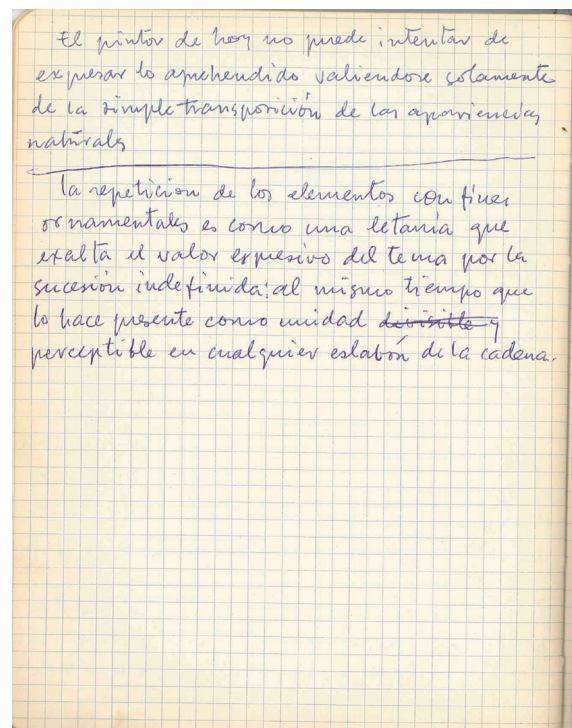 El pintor de hoy no puede intentar de
expresar lo aprehendido valiendose solamente
de la simple transposición de las apariencias
naturales
La repeticion de los elementos con fines
ornamentales es como una letanía que
exalta el valor expresivo del tema por la
sucesión indefinida; al mismo tiempo que
lo hace presente como unidad divisible y
perceptible en cualquier eslabón de la cadena.